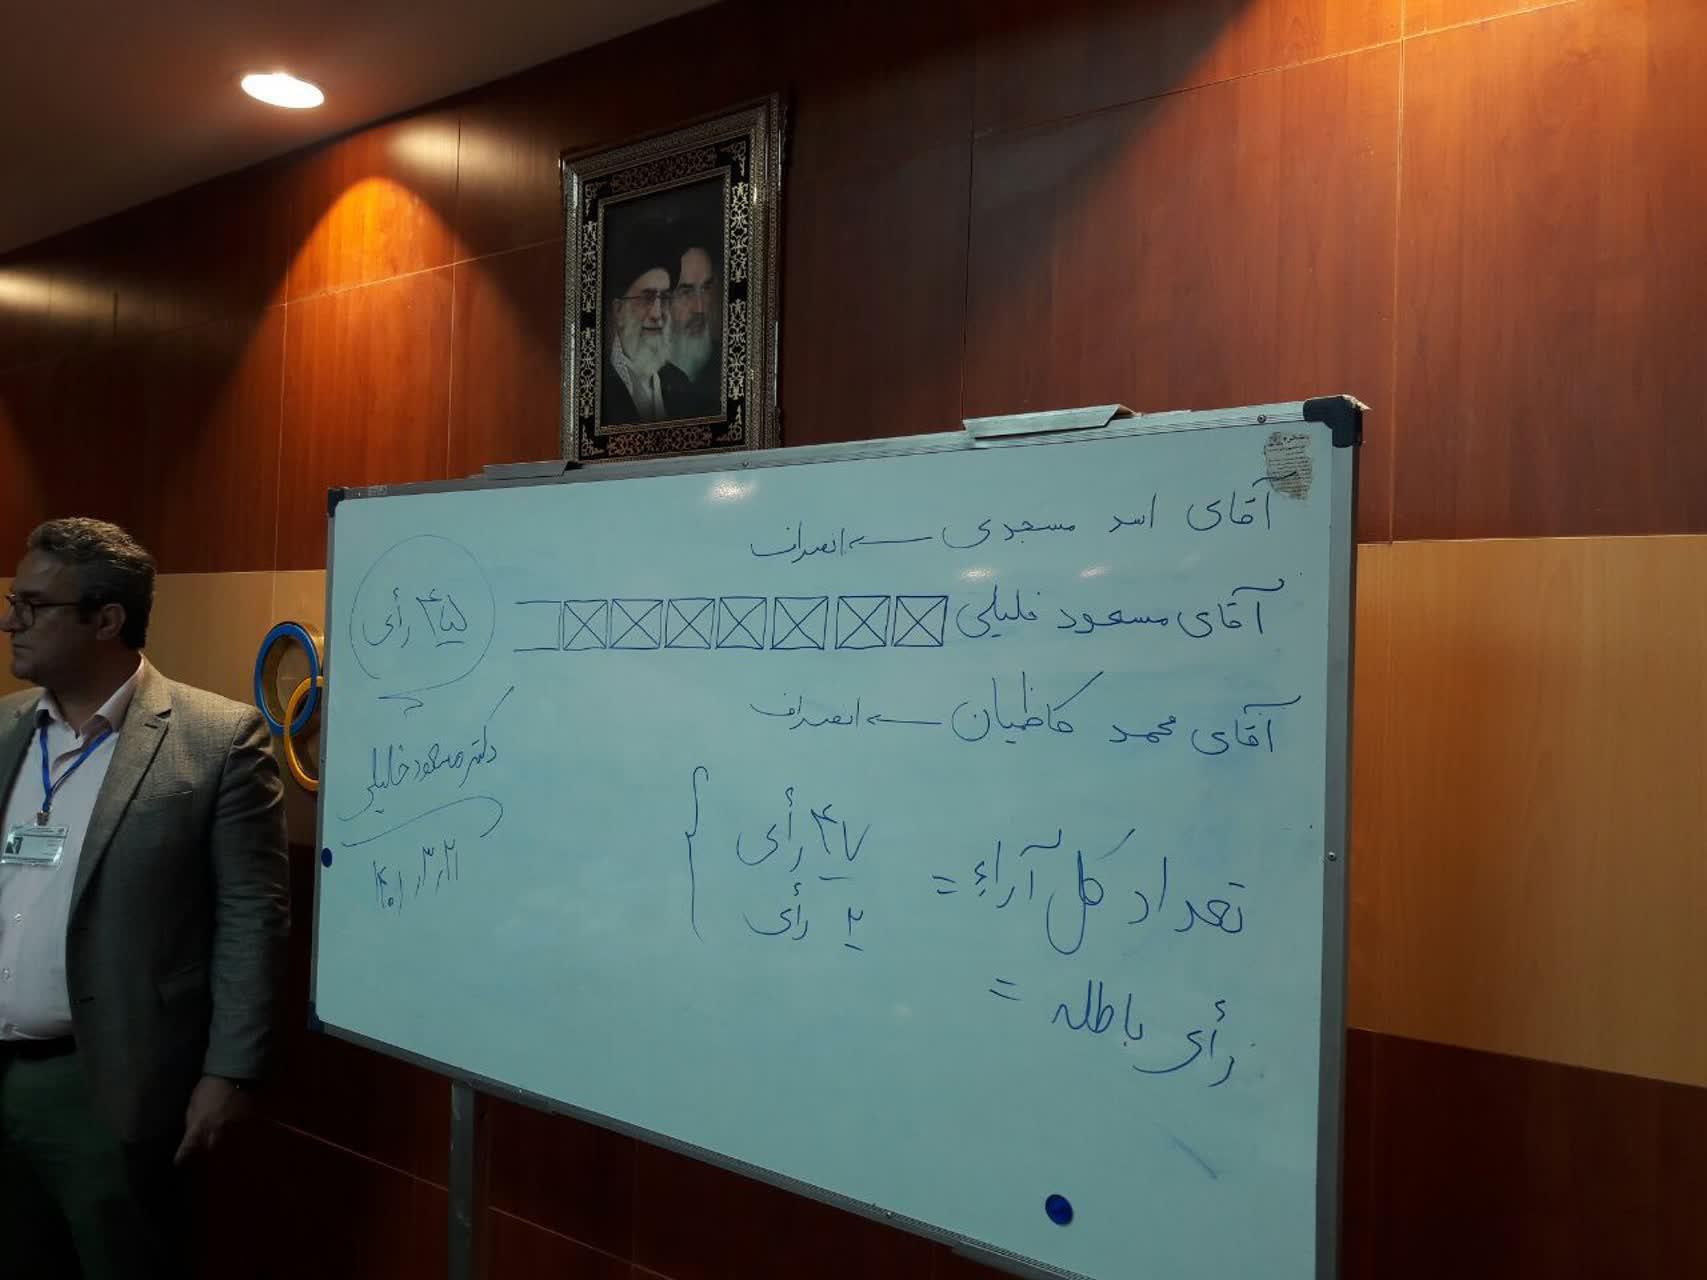 آقای اسد مسجدی ← انصراف
آقای مسعود خلیلی
آقای محمد کاظمیان ← انصراف
تعداد کل آراء = ۴۷ رأی
۲ رأی
رأی باطله =
۴۵ رأی
دکتر مسعود خلیلی
۱۴۰۱٫۳٫۲۱